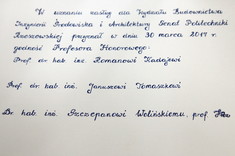 W uznaniu zasług dla Wydziału Budownictwa
Inżynierii Środowiska i Architektury Senat Politechniki
Rzeszowskiej przyznał w dniu 30 marca 2017 r.
godność Profesora Honorowego:
Prof. dr hab. inż. Romanowi Kadajowi
Prof. dr hab. inż. Januszowi Tomaszkowi
Dr hab. inż. Szczepanowi Wolińskiemu, prof.